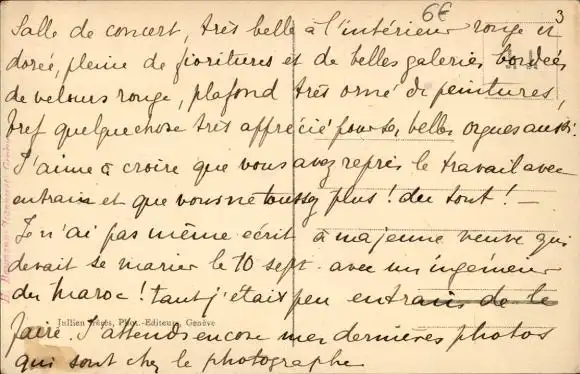 6€
3
Salle de concert, très belle à l'intérieur rouge et
dorée, pleine de fioritures et de belles galeries bordées
de velours rouge, plafond très orné de peintures,
bref quelque chose très apprécié pour ses belles orgues aussi.
J'aime à croire que vous avez repris le travail avec
entrain et que vous ne toussez plus! du tout! —
Je n'ai pas même écrit à ma jeune veuve qui
devait se marier le 10 sept. avec un ingénieur
du Maroc! tant j'étais peu en train de le
Jullien frères, Phot.-Editeurs, Genève
faire. J'attends encore mes dernières photos
qui sont chez le photographe